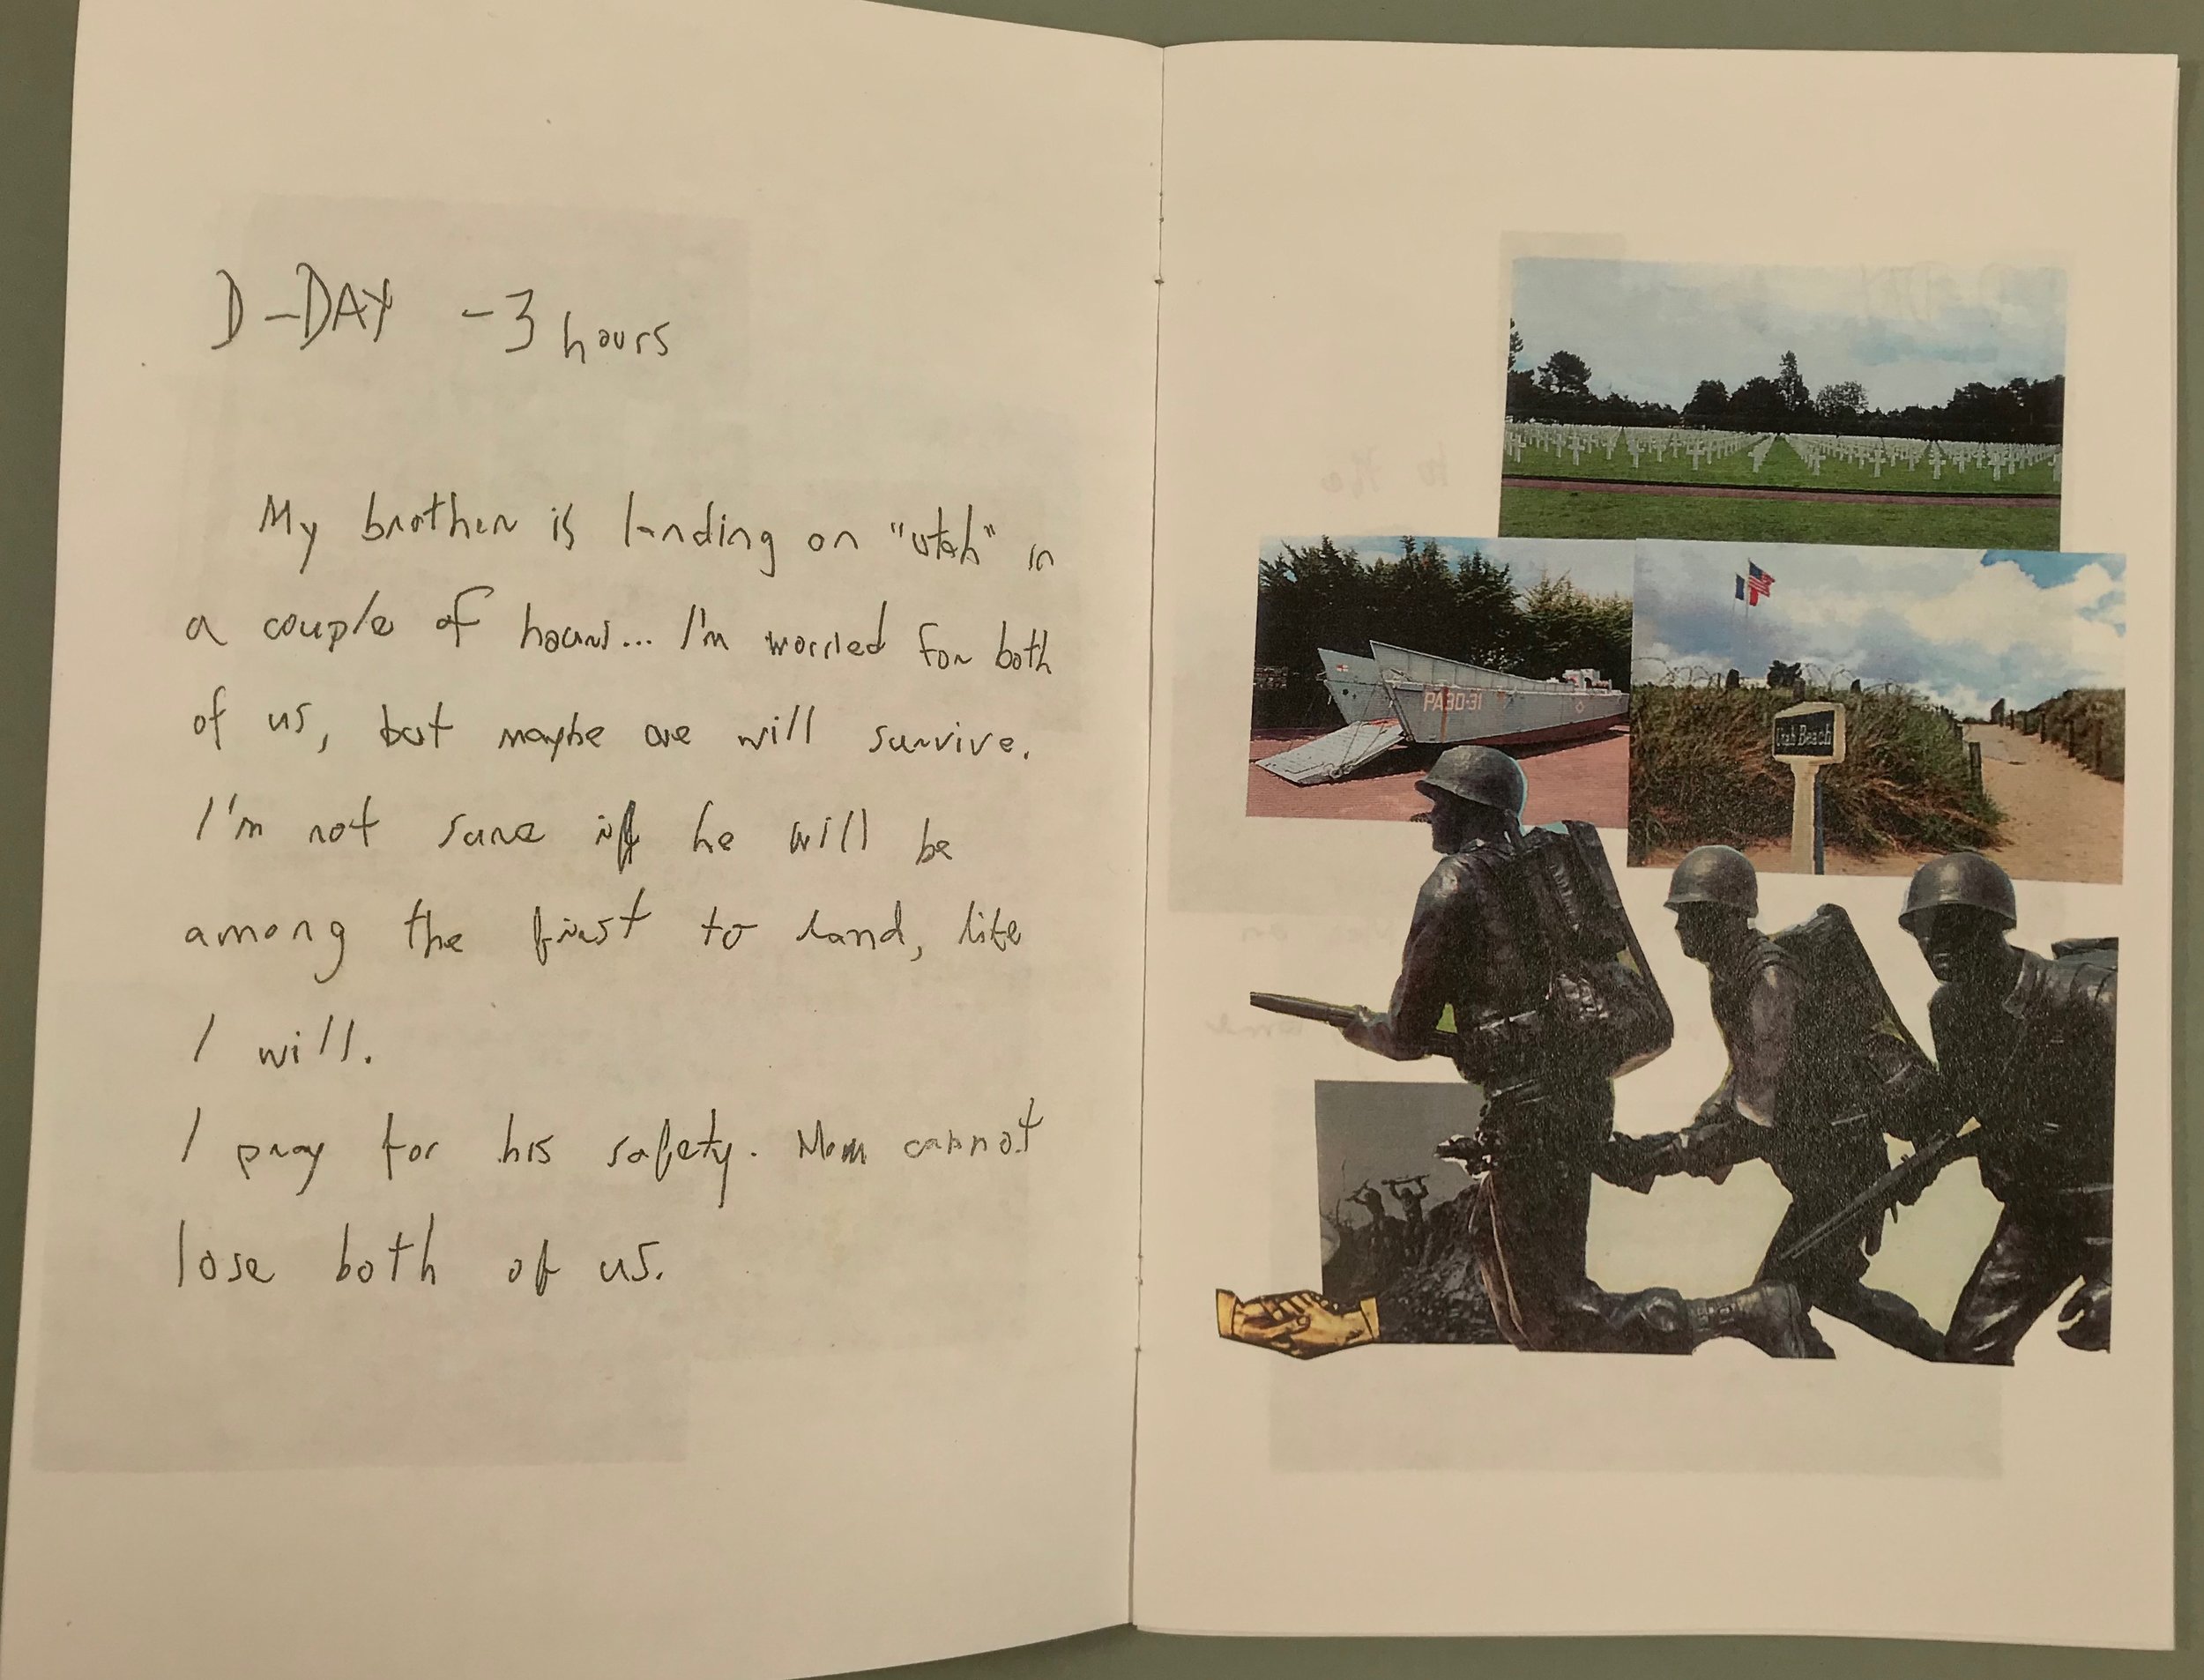 D-DAY -3 hours
My brother is landing on "utah" in
a couple of hours... I'm worried for both
of us, but maybe one will survive.
I'm not sure if he will be
among the first to land, like
I will.
I pray for his safety. Mom cannot
lose both of us.
PA30-31
Utah Beach
to the